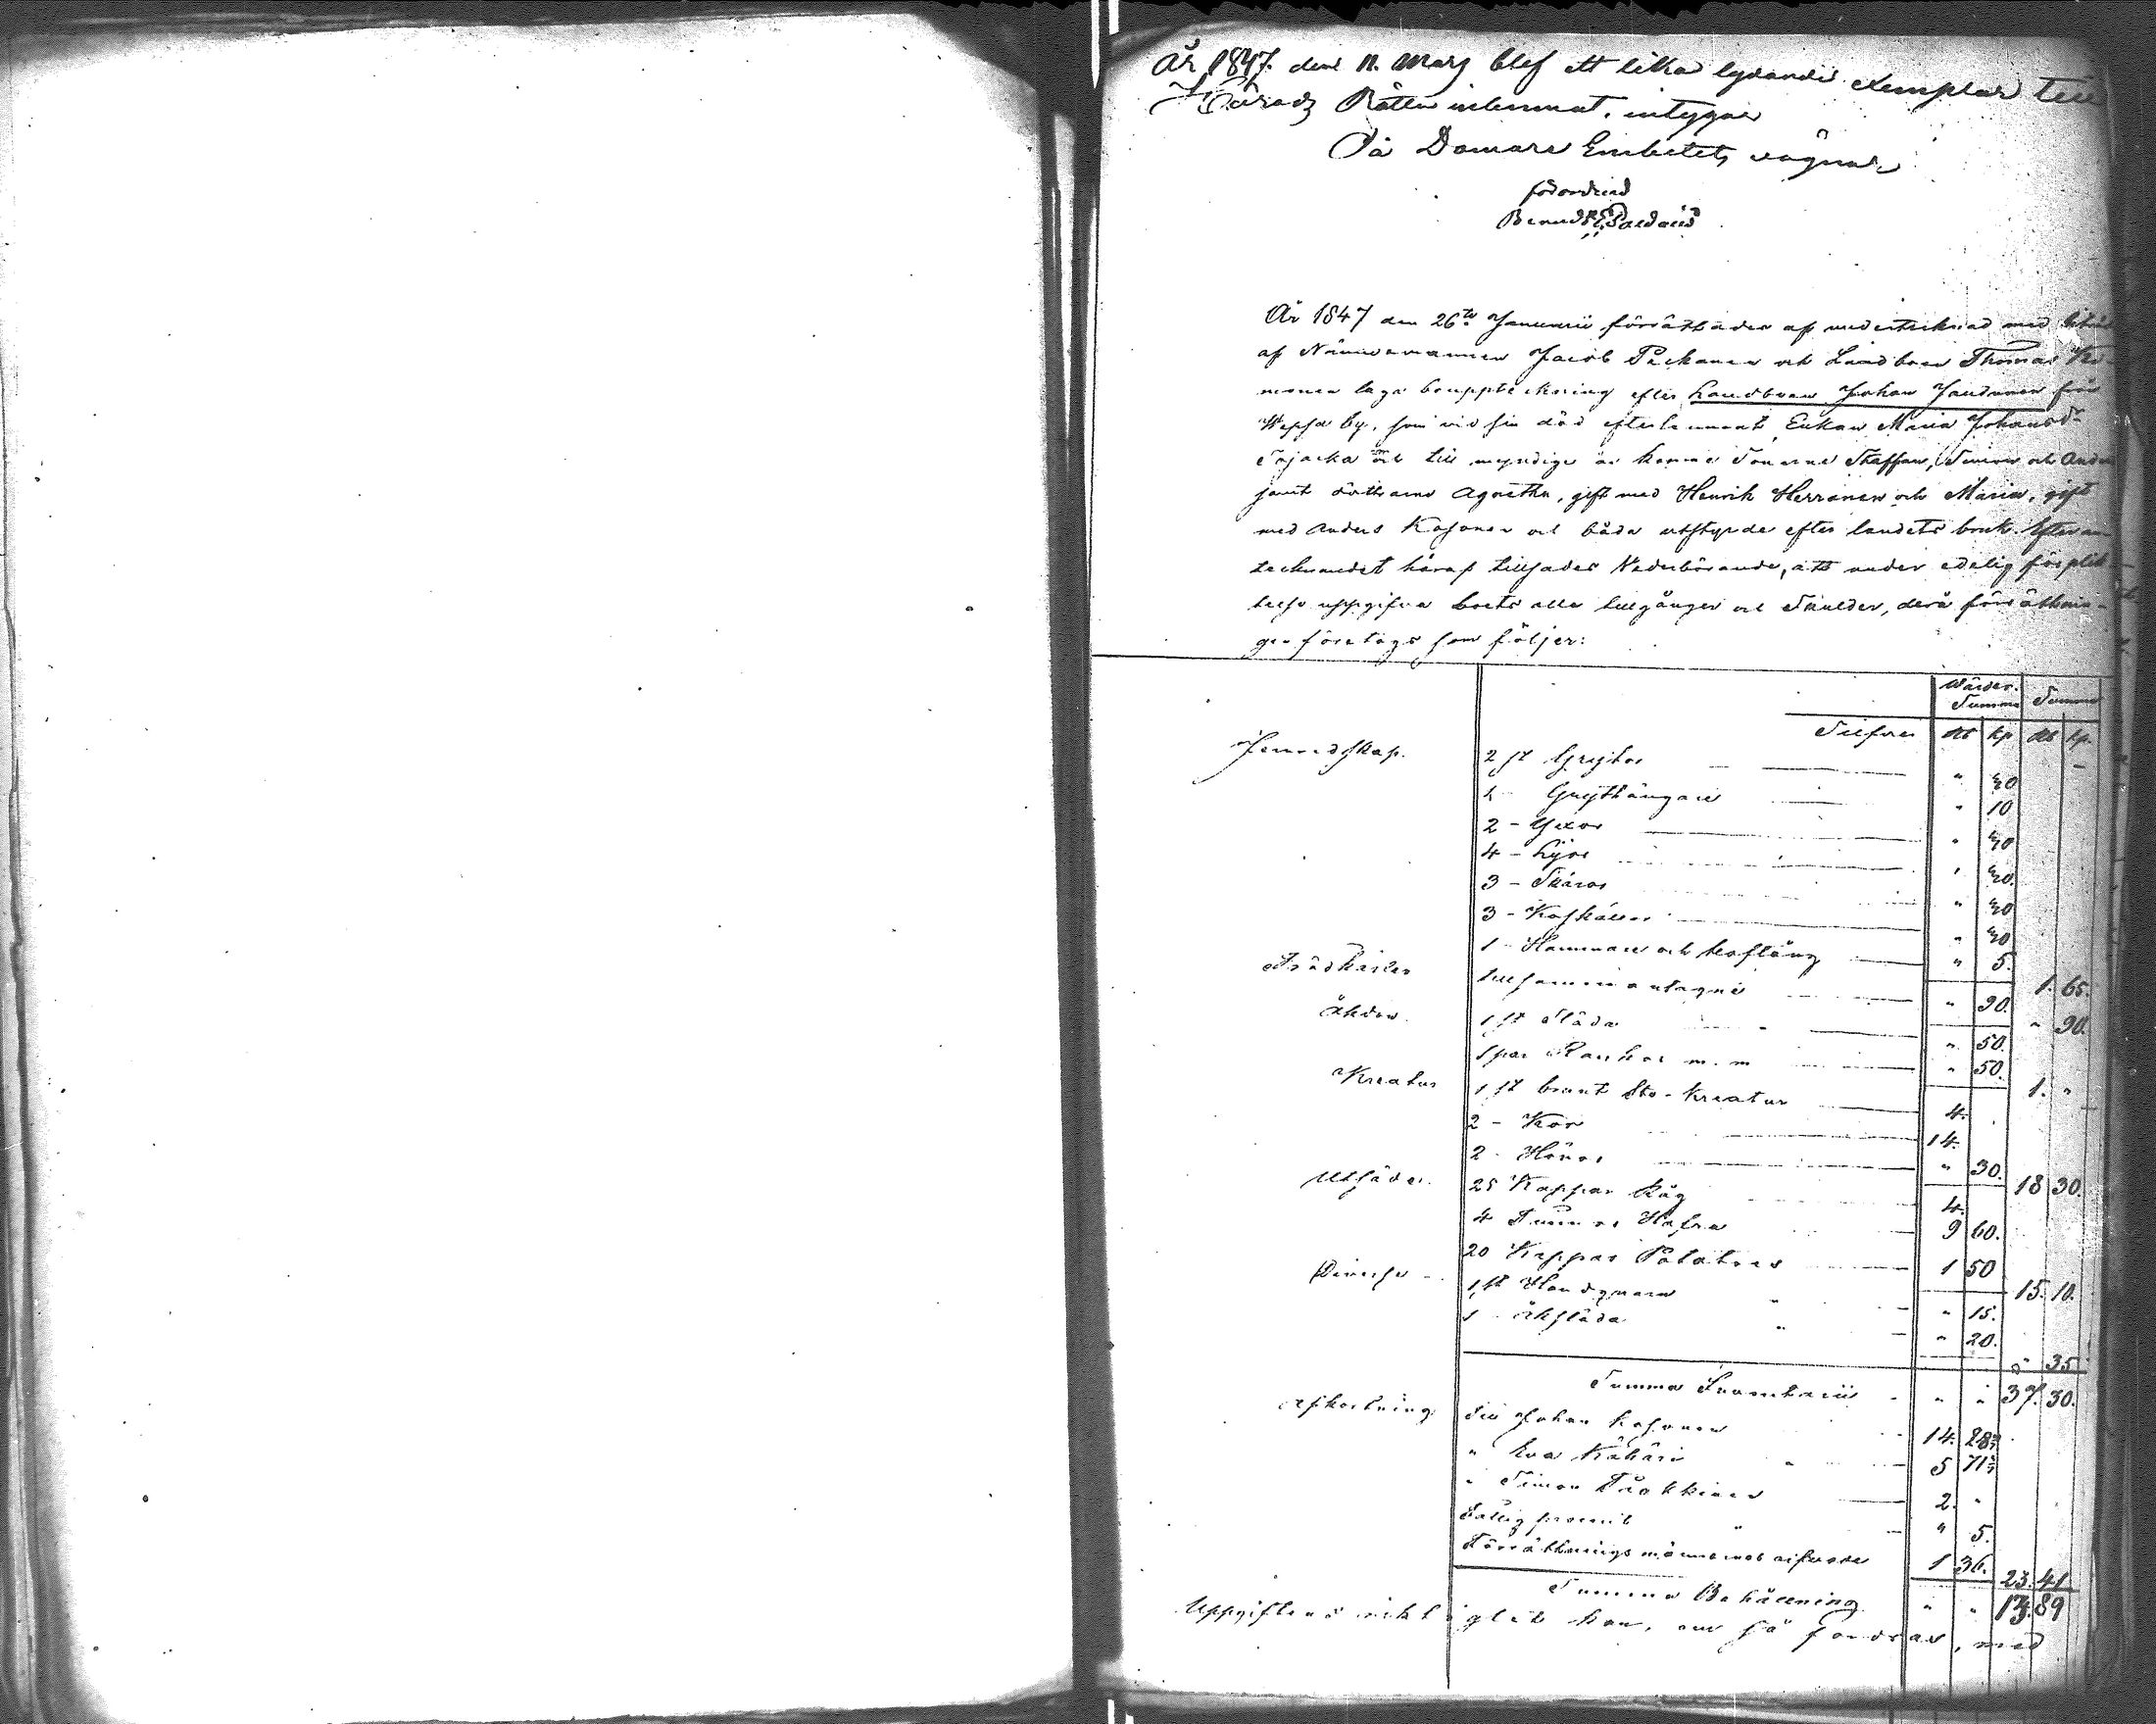 År 1847. den 11. Mars blef ett lika lydande exemplar till
Härads Rätten inlemnat, intygar
På Domare Embetets vägnar
förordnad
År 1847 den 26te Januarii förrättades af undertecknad med biträde
af Nämndemannen Jacob Pekanen och Landboen Thomas
nonen laga bouppteckning efter Landboen Johan Jandunen från
Wepsa by, som vid sin död efterlemnat Enkan Maria Johansdr
och till myndige år komne Sönerne Staffan, Simon och And
samt döttrarne Agnetha, gift med Henrik Herranen och Maria, gift
med Anders Kasonen och båda utstyrde efter landets bruk. Efter an-
tecknandet häraf tillsades Vederbörande, att under edelig förplik-
telse uppgifva boets alla tillgångar och Skulder, derå förrättnin-
gen företogs som följer:
Wärder. Summa Summa
Silfver Rb kp Rb kp.
Jernredskap. 2 st Grytor " 40
1 - Grythängare " 10
2 - Yxor " 40
4 - Lijor " 20.
3 - Skäror " 20
3 " 20
1 - Hammare och Hoftång " 5. 1. 65.
Trädkäriler tillsamman tagne " 90. " 90.
Åkdon. 1 st Släda " 50.
1 par Rankor m. m " 50. 1. "
Kreatur 1 st brunt Sto-kreatur 4.
2 - Kor 14.
2 - Hönor " 30. 18 30.
Utsäde. 25 Kappar Råg 4.
4 Tunnor Hafra 9 60.
20 Kappar Potatoes 1 50 15. 10.
Diverse - 1 st Handqvarn " 15.
1 - åksläda " 20. " 35
Summa Inventarii " " 37. 30.
Afkortning Till Johan Kasonen 14. 28
" Eva Kähäri 5 71
" Simon 2. "
Fattig procent " 5.
Förrättningsmännernes arfvode 1 36. 23. 41
Summa Behållning " " 13. 89
Uppgiftens riktighet kan, om så fordras, med